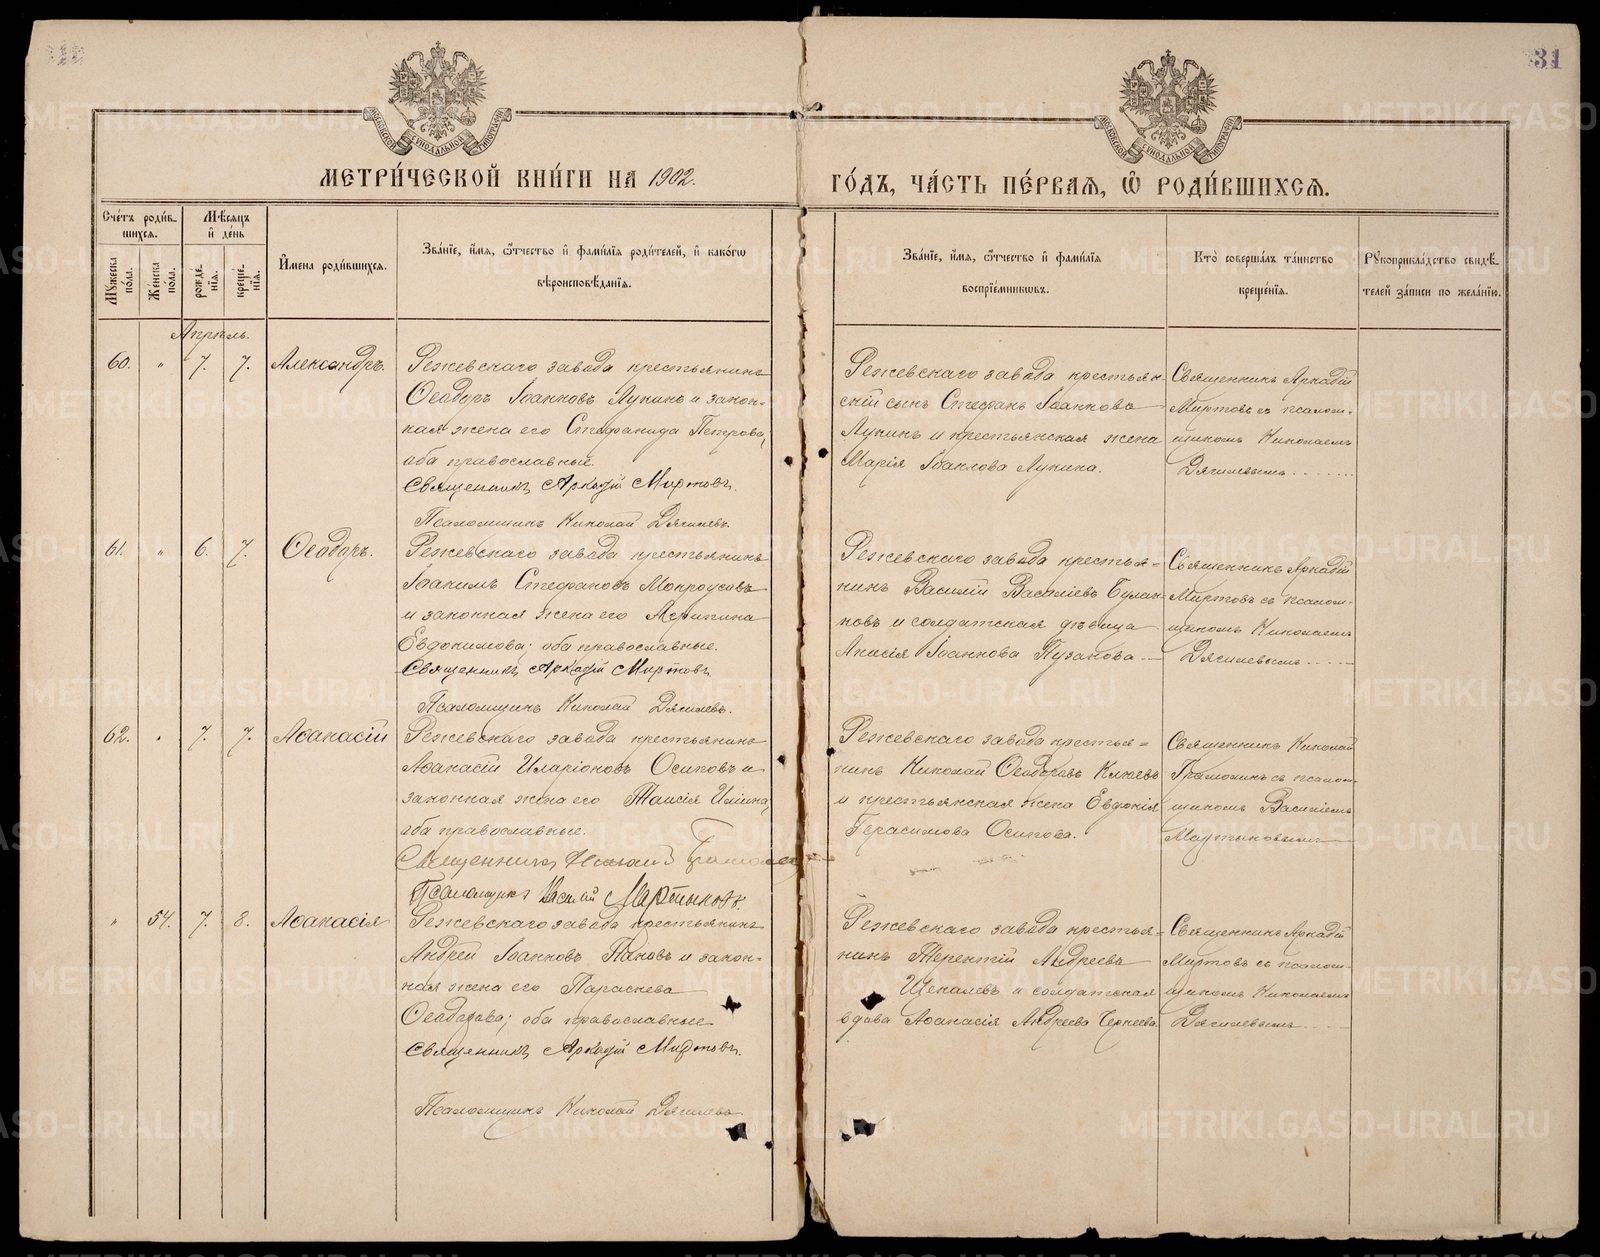 31
МОСКОВСКОЙ СѴНОДАЛЬНОЙ ТИПОГРАФІИ
МОСКОВСКОЙ СѴНОДАЛЬНОЙ ТИПОГРАФІИ
МЕТРИ́ЧЕСКОЙ КНИ́ГИ НА 1902.
ГО́ДЪ, ЧА́СТЬ ПЕ́РВАѦ, Ѽ РОДИ́ВШИХСѦ.
Сче́тъ роди́в-
шихсѧ.
Мѣ́сѧцъ
и҆ де́нь
Мꙋ́жеска по́ла.
Же́нска по́ла.
рожде́-
нїѧ.
креще́-
нїѧ.
И҆мена̀ роди́вшихсѧ.
Зва́нїе, и҆́мѧ, ѻ҆́тчество и҆ фами́лїѧ роди́телей, и҆ како́гѡ
вѣроисповѣ́данїѧ.
Зва́нїе, и҆́мѧ, ѻ҆́тчество и҆ фами́лїѧ
воспрїе́мникѡвъ.
Кто̀ соверша́лъ та́инство
креще́нїѧ.
Рꙋкоприкла́дство свидѣ́-
телей за́писи по жела́нїю.
Апрѣль.
60. " 7. 7. Александръ.
Режевскаго завода крестьянинъ
Ѳеодоръ Іоанновъ Лукинъ и закон-
ная жена его Стефанида Петрова,
оба православные.
Священникъ Аркадій Миртовъ.
Псаломщикъ Николай Дягилевъ.
Режевскаго завода крестьян-
скій сынъ Стефанъ Іоанновъ
Лукинъ и крестьянская жена
Марія Іоаннова Лукина.
Священникъ Аркадій
Миртовъ съ псалом-
щикомъ Николаемъ
Дягилевымъ.
61. " 6. 7. Ѳеодоръ.
Режевскаго завода крестьянинъ
Іоакимъ Стефановъ Мокроусовъ
и законная жена его Агрипина
Евдокимова; оба православные.
Священникъ Аркадій Миртовъ
Псаломщикъ Николай Дягилевъ.
Режевскаго завода крестья=
нинъ Василій Василіевъ Булан-
ковъ и солдатская дѣвица
Анисія Іоаннова Пузанова.
Священникъ Аркадій
Миртовъ съ псалом-
щикомъ Николаемъ
Дягилевымъ.
62. " 7. 7. Аѳанасій
Режевскаго завода крестьянинъ
Аѳанасій Иларіоновъ Осиповъ и
законная жена его Таисія Иліина,
оба православные.
Священникъ Николай
Псаломщикъ Василій Мартыновъ.
Режевскаго завода крестья=
нинъ Николай Ѳеодоровъ Клюевъ
и крестьянская жена Евдокія
Герасимова Осипова.
Священникъ Николай
съ псалом-
щикомъ Василіемъ
Мартыновымъ
" 54. 7. 8. Аѳанасія
Режевскаго завода крестьянинъ
Андрей Іоанновъ Пановъ и закон-
ная жена его Параскева
Ѳеодорова; оба православные.
Священникъ Аркадій Миртовъ.
Псаломщикъ Николай Дягилевъ
Режевскаго завода крестья=
нинъ Терентій Андреевъ
Щекалевъ и солдатская
вдова Аѳанасія Андреева
Священникъ Аркадій
Миртовъ съ псалом-
щикомъ Николаемъ
Дягилевымъ
METRIKI.GASO-URAL.RU